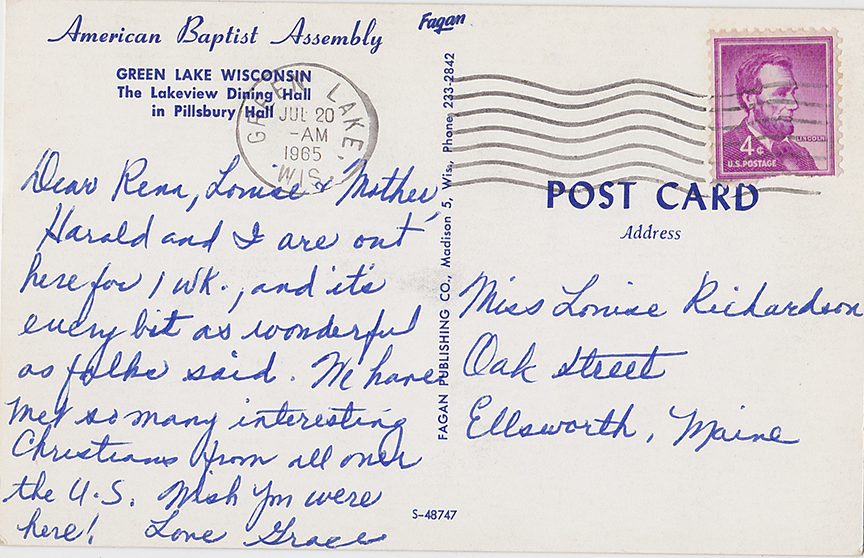 American Baptist Assembly
GREEN LAKE WISCONSIN
The Lakeview Dining Hall
in Pillsbury Hall
GREEN LAKE, WIS.
JUL 20
-AM
1965
Dear Rena, Louise & Mother,
Harald and I are out
here for 1 wk., and it's
every bit as wonderful
as folks said. We have
met so many interesting
Christians from all over
the U.S. Wish you were
here! Love Grace
Fagan
FAGAN PUBLISHING CO., Madison 5, Wis., Phone 233-2842
S-48747
LINCOLN
4¢
U.S. POSTAGE
POST CARD
Address
Miss Louise Richardson
Oak Street
Ellsworth, Maine